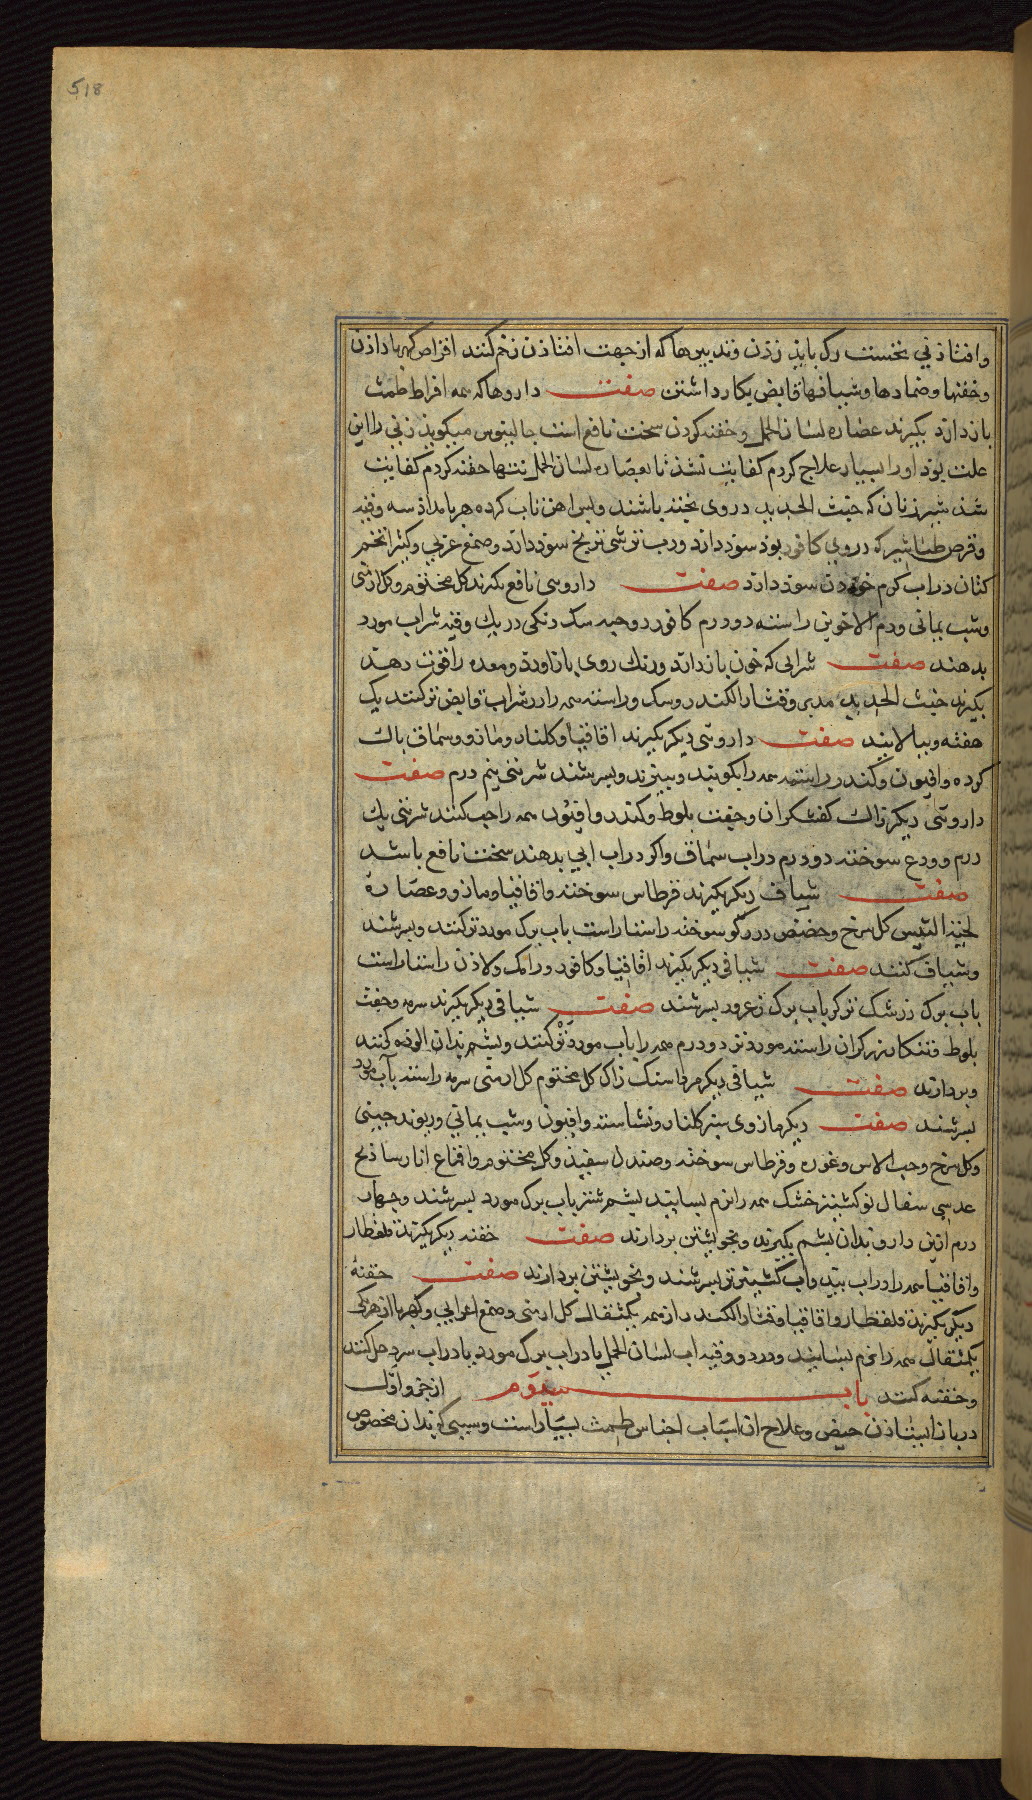 518
وافتاذنی نخست رک بایذ زذن وتدبیرها که از جهت افتاذن زخم کنند اقراص کهربا داذن
وحقنها وضمادها وشیافهاء قابض بکار داشتن صفت داروها که همه افراط طمث
باز دارد بکیرند عصاره لسان الحمل وحقنه کردن سخت نافع است جالینوس میکویذ زنی را این
علت بوذ اورا بسیار علاج کردم کفایت نشذ تا بعصاره لسان الحمل تنها حقنه کردم کفایت
شذ شیر زنان که خبث الحدید در وی پخته باشند وبس اهن تاب کرده هر بامداذ سه وقیه
وقرص طباشیر که در وی کافور بوذ سوذ دارد ورب ترشی ترنج سوذ دارد وصمغ عربی وکثیرا تخم
کتان در اب کرم خوردن سوذ دارد صفت داروئی نافع بکیرند کل مختوم وکل ارمنی
وشب یمانی ودم الاخوین راستا راست دو درم کافور دو حبه مشک دنکی در یک وقیه شراب مورد
بدهند صفت شرابی که خون باز دارد ورنک روی باز آورد ومعده را قوت دهد
بکیرند خبث الحدید مدبر وقشار الکندر وسک وراستا همه را در شراب قابض تر کنند یک
هفته وببالایند صفت داروئی دیکر بکیرند اقاقیا وکلنار ومازو وسماق پاک
کرده وافیون وکندر راستا همه را بکوبند وببیزند وبسرشند شربتی نیم درم صفت
داروئی دیکر زاک کفشکران وجفت بلوط وکندر وافیون همه را حب کنند شربتی یک
درم وودع سوخته دو درم در اب سماق واکر در اب ابی بدهند سخت نافع باشد
صفت شیاف دیکر بکیرند قرطاس سوخته واقاقیا ومازو وعصارة
لحیة التیس کل سرخ وحضض سوخته راستا راست باب برک مورد تر کنند وبسرشند
وشیاف کنند صفت شیافی دیکر بکیرند اقاقیا وکافور ورامک ولاذن راستا راست
باب برک زرشک تر کر باب برک زعرور بسرشند صفت شیافی دیکر بکیرند سرمه وجفت
بلوط وتنکار زرکران راستا مورد تر دو درم همه را باب مورد تر کنند وپشم بدان الوده کنند
وبردارند صفت شیافی دیکر مرداسنک زاک کل مختوم کل ارمنی سرمه راستا بآب مورد
بسرشند صفت دیکر مازوی سبز کلنار ونشاسته وافیون وشب یمانی وریوند جینی
وکل سرخ وحب الاس وغوره وقرطاس سوخته وصندل سفیذ وکل مختوم واقماع انار ساذج
عدسی سفال نو کشنیز خشک همه را نرم بسایند باب برک مورد بسرشند وجهار
درم ازین دارو بدان پشم بکیرند وبخویشتن بردارند صفت حقنه دیکر بکیرند قلقطار
واقاقیا همه را در اب بید واب کشنیز تر بسرشند وبخویشتن بردارند صفت حقنهٔ
دیکر بکیرند قلقطار واقاقیا وقشار الکندر از همه یکمثقال کل ارمنی وصمغ اعرابی وکهربا از هر یکی
یکمثقال همه را نرم بسایند ودر دو وقیه اب لسان الحمل یا در اب برک مورد یا در اب سرد حل کنند
وحقنه کنند باب سیوم از جزو اول
در باز ایستاذن حیض وعلاج ان اسباب احتباس طمث بسیار است وسببی که بدان مخصوص